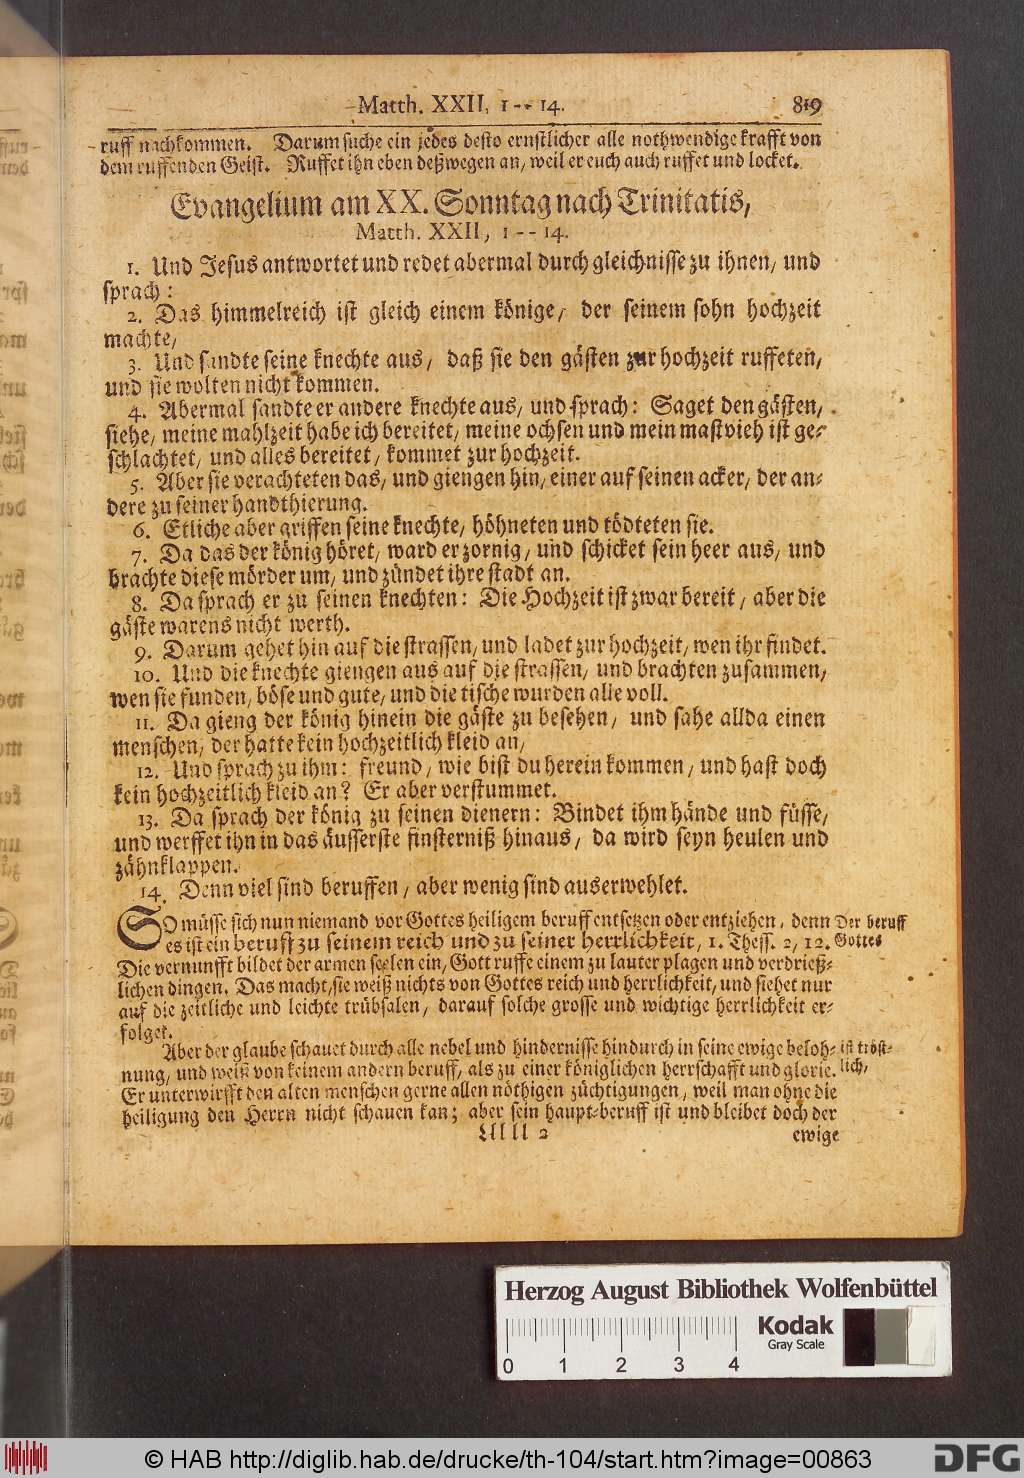 Matth. XXII, 1 -- 14. 819
ruff nachkommen. Darum suche ein jedes desto ernstlicher alle nothwendige krafft von
dem ruffenden Geist. Ruffet ihn eben deßwegen an, weil er euch auch ruffet und locket.
Evangelium am XX. Sonntag nach Trinitatis,
Matth. XXII, 1 -- 14.
1. Und Jesus antwortet und redet abermal durch gleichnisse zu ihnen/ und
sprach:
2. Das himmelreich ist gleich einem könige/ der seinem sohn hochzeit
machte/
3. Und sandte seine knechte aus/ daß sie den gästen zur hochzeit ruffeten/
und sie wolten nicht kommen.
4. Abermal sandte er andere knechte aus/ und sprach: Saget den gästen/
siehe/ meine mahlzeit habe ich bereitet/ meine ochsen und mein mastvieh ist ge-
schlachtet/ und alles bereitet/ kommet zur hochzeit.
5. Aber sie verachteten das/ und giengen hin/ einer auf seinen acker/ der an-
dere zu seiner handthierung.
6. Etliche aber griffen seine knechte/ höhneten und tödteten sie.
7. Da das der könig höret/ ward er zornig/ und schicket sein heer aus/ und
brachte diese mörder um/ und zündet ihre stadt an.
8. Da sprach er zu seinen knechten: Die Hochzeit ist zwar bereit/ aber die
gäste warens nicht werth.
9. Darum gehet hin auf die strassen/ und ladet zur hochzeit/ wen ihr findet.
10. Und die knechte giengen aus auf die strassen/ und brachten zusammen/
wen sie funden/ böse und gute/ und die tische wurden alle voll.
11. Da gieng der könig hinein die gäste zu besehen/ und sahe allda einen
menschen/ der hatte kein hochzeitlich kleid an/
12. Und sprach zu ihm: freund/ wie bist du herein kommen/ und hast doch
kein hochzeitlich kleid an? Er aber verstummet.
13. Da sprach der könig zu seinen dienern: Bindet ihm hände und füsse/
und werffet ihn in das äusserste finsterniß hinaus/ da wird seyn heulen und
zähnklappen.
14. Denn viel sind beruffen/ aber wenig sind auserwehlet.
SO müsse sich nun niemand vor Gottes heiligem beruff entsetzen oder entziehen, denn Der beruff
es ist ein beruff zu seinem reich und zu seiner herrlichkeit, 1. Thess. 2, 12. Gottes
Die vernunfft bildet der armen seelen ein, Gott ruffe einem zu lauter plagen und verdrieß-
lichen dingen. Das macht, sie weiß nichts von Gottes reich und herrlichkeit, und siehet nur
auf die zeitliche und leichte trübsalen, darauf solche grosse und wichtige herrlichkeit er-
folget.
Aber der glaube schauet durch alle nebel und hindernisse hindurch in seine ewige beloh- ist tröst-
nung, und weiß von keinem andern beruff, als zu einer königlichen herrschafft und glorie. lich,
Er unterwirfft den alten menschen gerne allen nöthigen züchtigungen, weil man ohne die
heiligung den Herrn nicht schauen kan; aber sein haupt-beruff ist und bleibet doch der
Lll ll 2 ewige
Herzog August Bibliothek Wolfenbüttel
Kodak
Gray Scale
0 1 2 3 4
© HAB http://diglib.hab.de/drucke/th-104/start.htm?image=00863
DFG